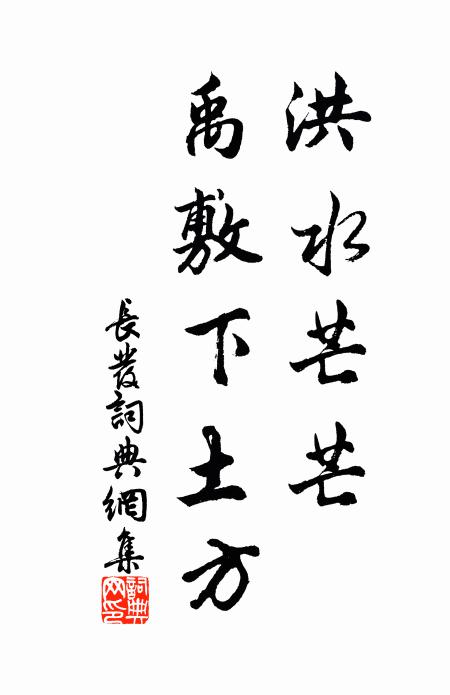 洪水芒芒
禹敷下土方
長發詞典網集
詞典網印